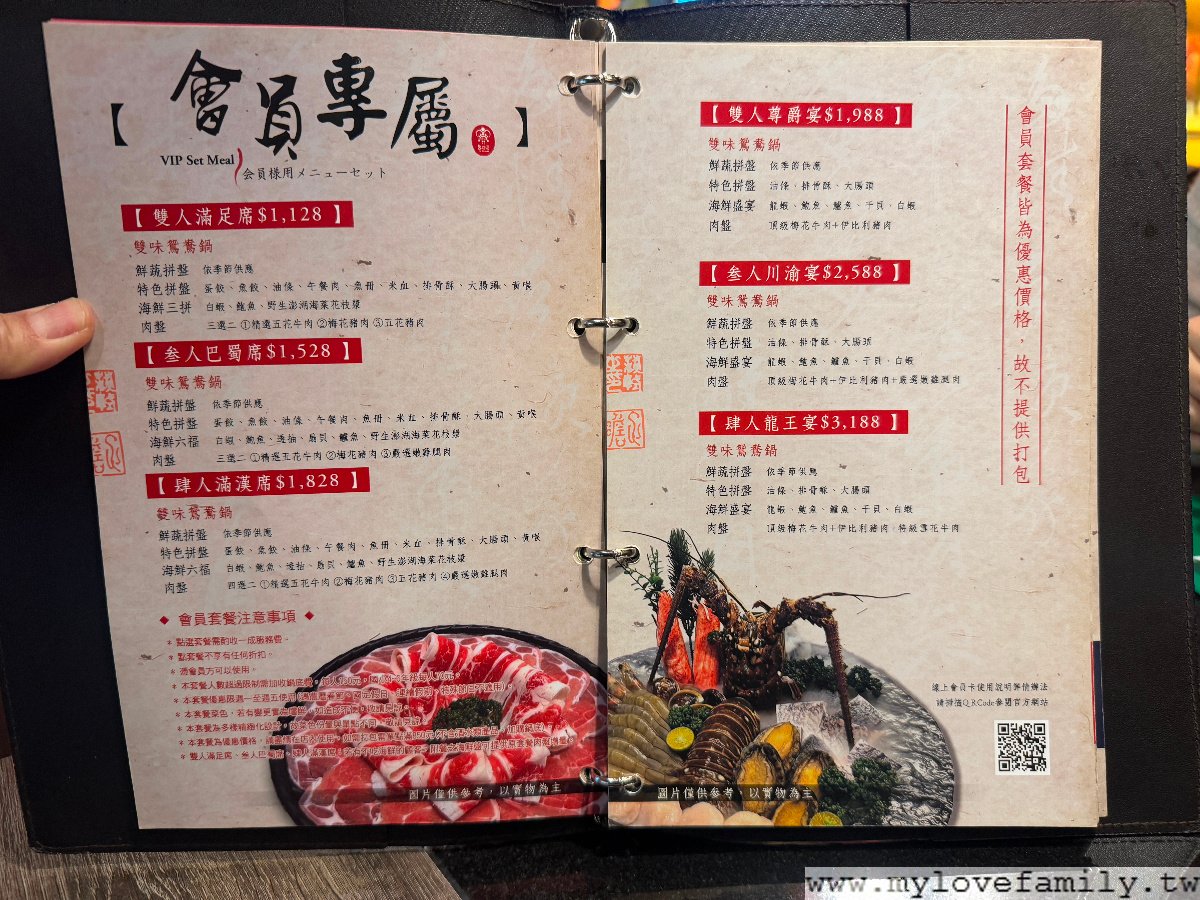 【 會員專屬 】
VIP Set Meal
会員様用メニューセット
【 雙人滿足席$1,128 】
雙味鴛鴦鍋
鮮蔬拼盤 依季節供應
特色拼盤 蛋餃、魚餃、油條、午餐肉、魚冊、米血、排骨酥、大腸頭、黃喉
海鮮三拼 白蝦、鮑魚、野生澎湖海菜花枝漿
肉盤 三選二 ①精選五花牛肉 ②梅花豬肉 ③五花豬肉
【 叁人巴蜀席$1,528 】
雙味鴛鴦鍋
鮮蔬拼盤 依季節供應
特色拼盤 蛋餃、魚餃、油條、午餐肉、魚冊、米血、排骨酥、大腸頭、黃喉
海鮮六福 白蝦、鮑魚、透抽、扇貝、鱸魚、野生澎湖海菜花枝漿
肉盤 三選二 ①精選五花牛肉 ②梅花豬肉 ③嚴選嫩雞腿肉
【 肆人滿漢席$1,828 】
雙味鴛鴦鍋
鮮蔬拼盤 依季節供應
特色拼盤 蛋餃、魚餃、油條、午餐肉、魚冊、米血、排骨酥、大腸頭、黃喉
海鮮六福 白蝦、鮑魚、透抽、扇貝、鱸魚、野生澎湖海菜花枝漿
肉盤 四選二 ①精選五花牛肉 ②梅花豬肉 ③五花豬肉 ④嚴選嫩雞腿肉
◆ 會員套餐注意事項 ◆
* 點選套餐需酌收一成服務費。
* 點套餐不享有任何折扣。
* 憑會員方可以使用。
圖片僅供參考，以實物為主
【 雙人尊爵宴$1,988 】
雙味鴛鴦鍋
鮮蔬拼盤 依季節供應
特色拼盤 油條、排骨酥、大腸頭
海鮮盛宴 龍蝦、鮑魚、鱸魚、干貝、白蝦
肉盤 頂級梅花牛肉+伊比利豬肉
【 叁人川渝宴$2,588 】
雙味鴛鴦鍋
鮮蔬拼盤 依季節供應
特色拼盤 油條、排骨酥、大腸頭
海鮮盛宴 龍蝦、鮑魚、鱸魚、干貝、白蝦
肉盤 頂級雪花牛肉+伊比利豬肉+嚴選嫩雞腿肉
【 肆人龍王宴$3,188 】
雙味鴛鴦鍋
鮮蔬拼盤 依季節供應
特色拼盤 油條、排骨酥、大腸頭
海鮮盛宴 龍蝦、鮑魚、鱸魚、干貝、白蝦
肉盤 頂級梅花牛肉+伊比利豬肉+特級雪花牛肉
會員套餐皆為優惠價格，故不提供打包
線上會員卡使用說明詳情辦法
請掃描QRCode參閱官方網站
圖片僅供參考，以實物為主
www.mylovefamily.tw